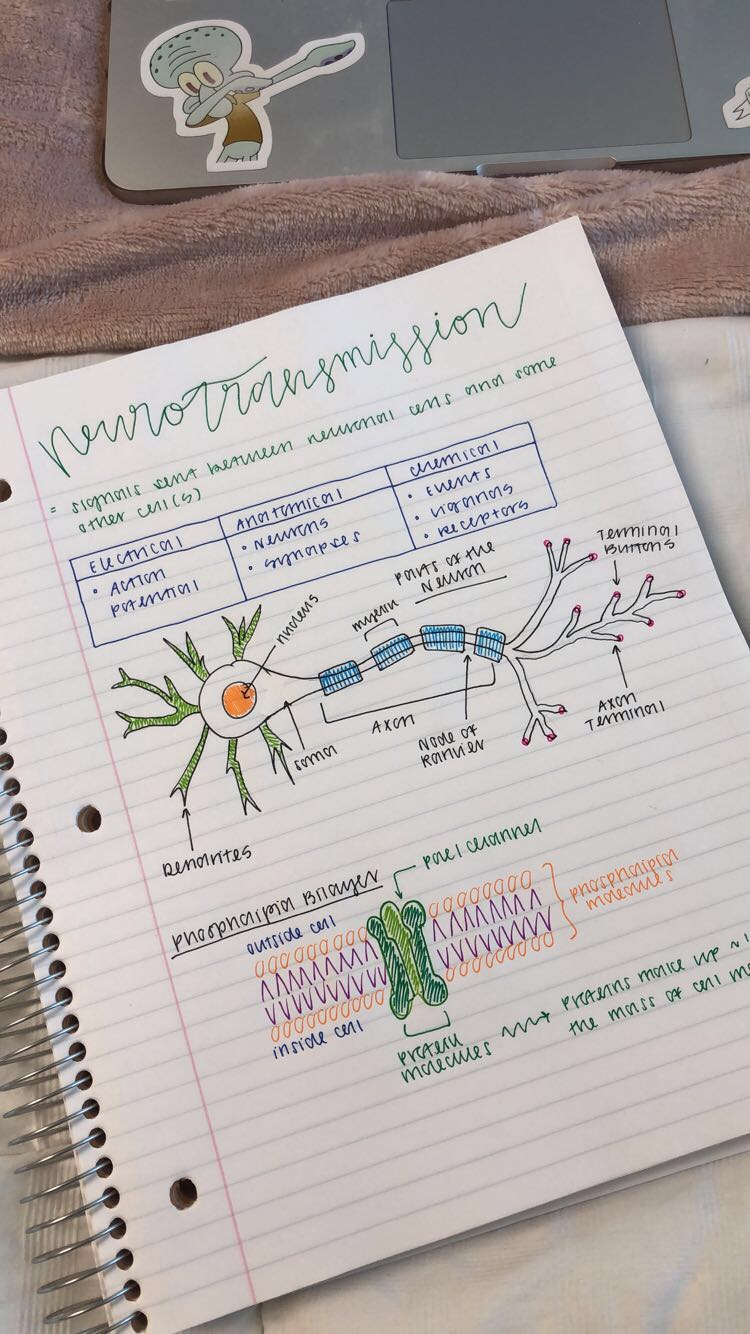 neurotransmission
= signals sent between neuronal cells and some
other cell(s)
Electrical
• Action
potential
Anatomical
• Neurons
• synapses
chemical
• Events
• Ligands
• Receptors
Parts of the
Neuron
nucleus
myelin
Terminal
Buttons
soma
Axon
Node of
Ranvier
Axon
Terminal
Dendrites
Phospholipid Bilayer
pore/channel
outside cell
inside cell
phospholipid
molecules
protein
molecules
proteins make up ~
the mass of cell